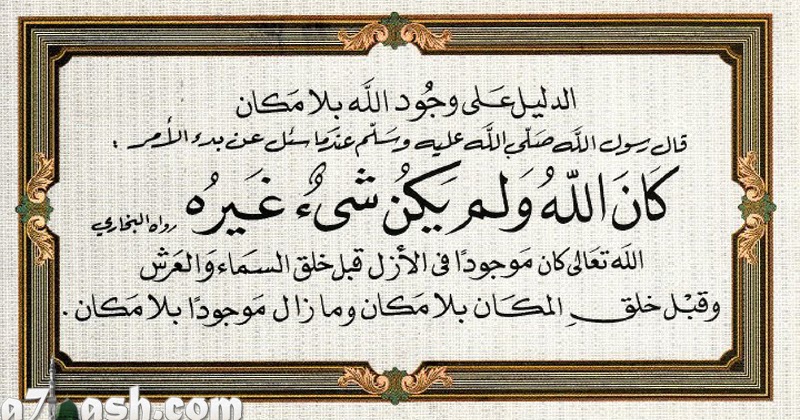 الدليل على وجُود اللَّه بلا مَكان
قال رسول اللَّه صَلّى اللَّه عليه وسَلّم عندَما سئل عن بدء الأمر :
كَانَ اللّٰهُ وَلم يَكنْ شىءٌ غَيرُه رواه البخاري
اللَه تعَالى كان مَوجودًا فى الأزل قبل خلق السمَاء وَالعَرش
وقبْل خلقِ المكَان بلا مَكان ومَا زال مَوجودًا بلا مَكان .
a7bash.com